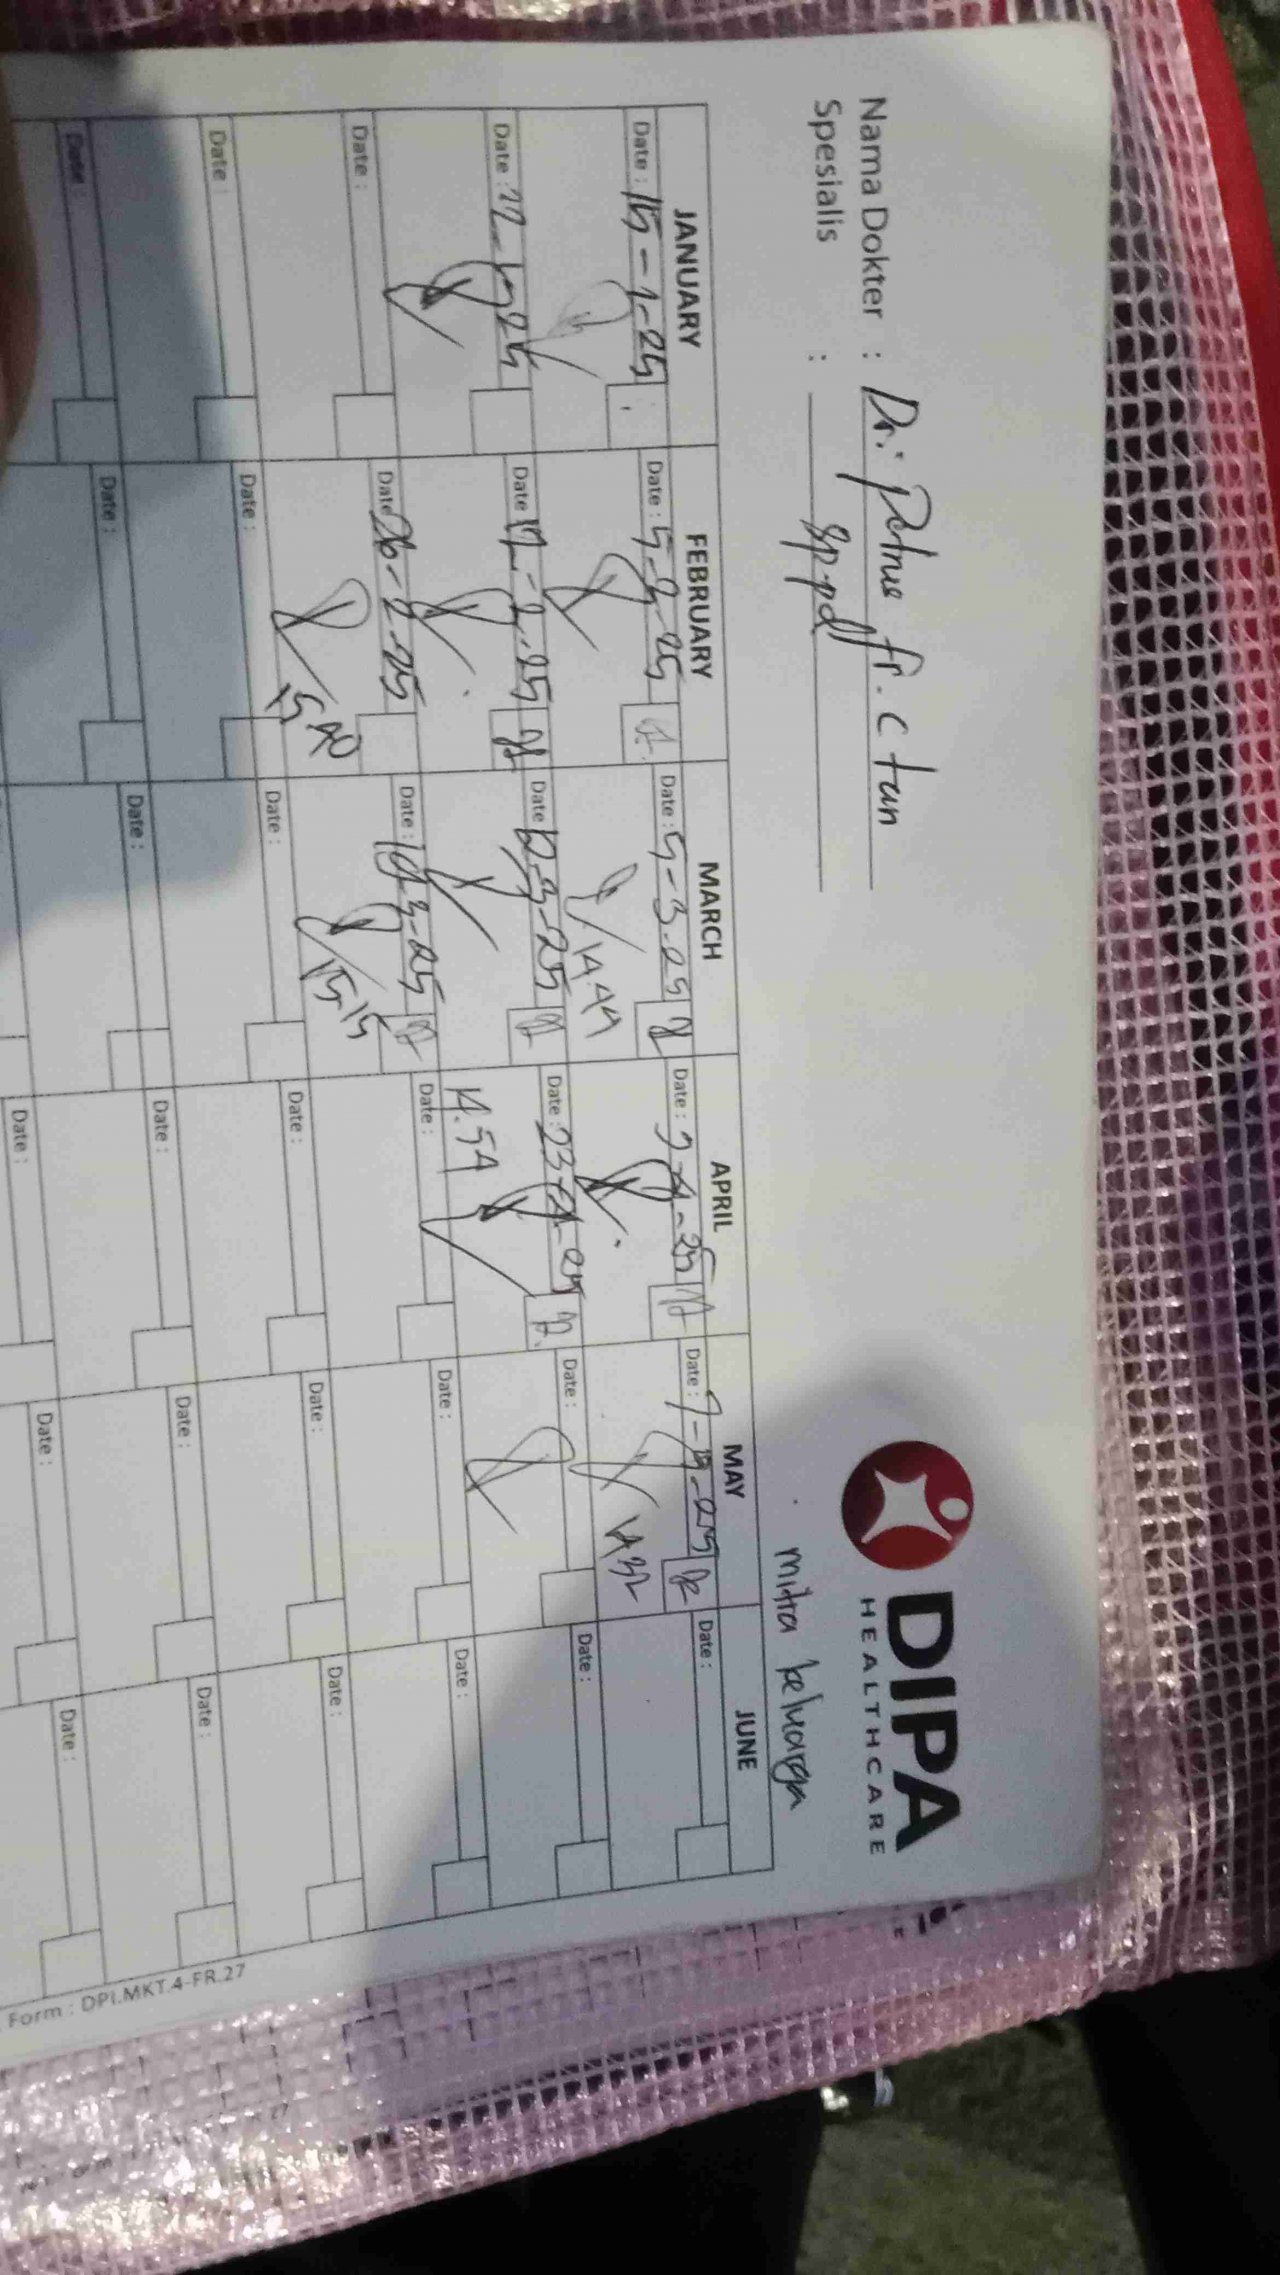 DIPA
HEALTHCARE
Nama Dokter : Dr. Petrus fr. c tan
Spesialis : Sppd
mitra keluarga
JANUARY FEBRUARY MARCH APRIL MAY JUNE
Date : 15-1-25 Date : 5-2-25 Date : 5-3-25 Date : 7-4-25 Date : 7-5-25 Date :
14.44 14.32
Date : 22-1-25 Date : 17-2-25 Date : 12-3-25 Date : 23-4-25 Date : Date :
14.54
Date : Date : 26-2-25 Date : 19-3-25 Date : Date : Date :
15.15
Date : Date : Date : Date : Date : Date :
Date : Date : Date : Date : Date : Date :
Date : Date : Date :
Form : DPI.MKT.4-FR.27